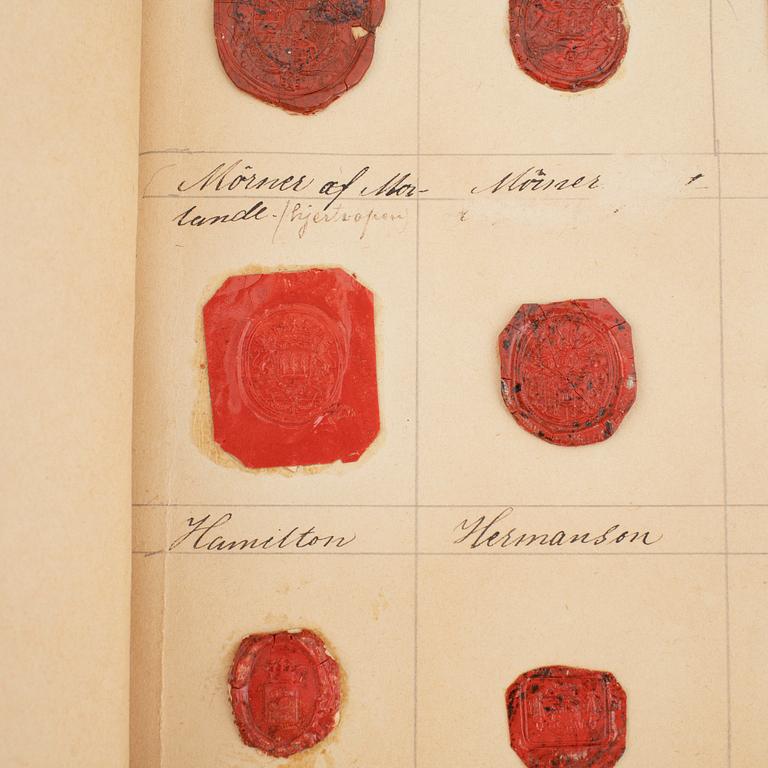 Mörner af Mor-
lande. (hjertvapen)
Mörner
Hamilton
Hermanson